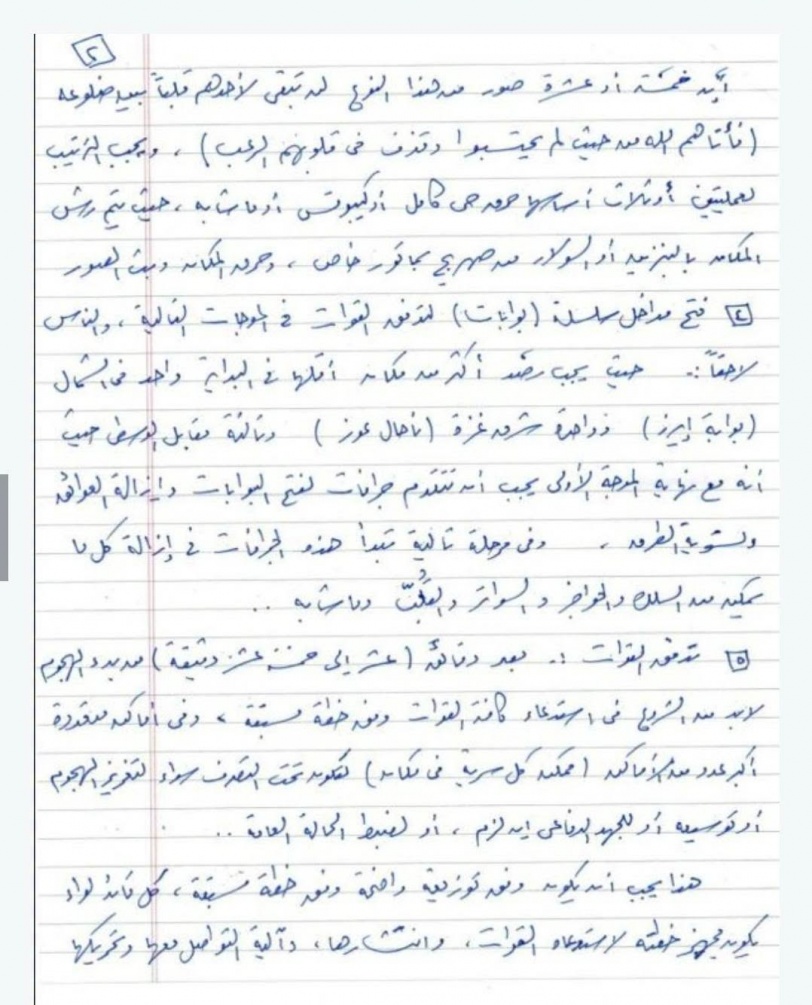 ٢
أيد خمسة أو عشرة صور من هذا النوع لن تبقى لأحدهم قلباً بين ضلوعه
(فأتاهم الله من حيث لم يحتسبوا وقذف في قلوبهم الرعب) ، ويجب الترتيب
لعمليتين أو ثلاث أساسها حرق حي كامل أو كيبوتس أو ما شابه ، حيث يتم رش
المكان بالبنزين أو السولار من صهريج بماتور خاص ، وحرق المكان وبث الصور
٤ فتح مداخل سلسلة (بوابات) لتدفق القوات في الموجات التالية ، والناس
لاحقاً :. حيث يجب رصد أكثر من مكان أقلها في البداية واحد في الشمال
(بوابة إيرز) وواحدة شرق غزة (ناحال عوز) وثالثة مقابل الوسطى حيث
أنه مع نهاية الموجة الأولى يجب أن تتقدم جرافات لفتح البوابات وإزالة العوائق
وتسوية الطرق ، وفي مرحلة تالية تبدأ هذه الجرافات في إزالة كل ما
يمكن من السلك والحواجز والسواتر وما شابه ..
٥ تدفق القوات :. بعد دقائق (عشر إلى خمسة عشر دقيقة) من بدء الهجوم
لابد من الشروع في استدعاء كافة القوات وفق خطة مسبقة ، وفي أماكن متعددة
أكبر عدد من الأماكن (ممكن كل سرية في مكان) لتكون تحت التصرف سواء لتعزيز الهجوم
أو توسيعه أو للجهد الدفاعي إن لزم ، أو لضبط الحالة العامة ..
هذا يجب أن يكون وفق توزيعة واضحة وفق خطة مسبقة ، كل قائد لواء
يكون مجهز خطته لاستدعاء القوات ، وانتشارها ، وآلية التواصل معها وتحريكها